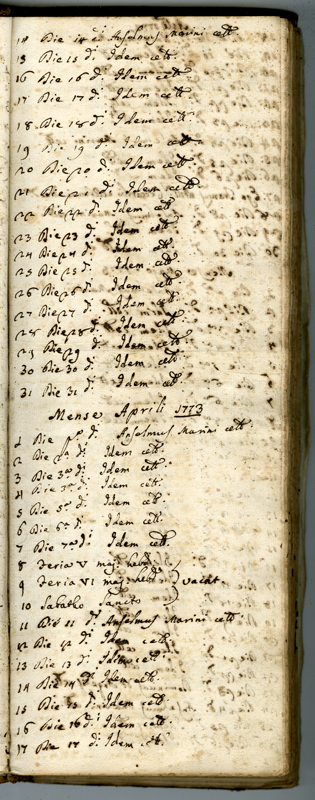 14 Die 14 dỉ Anselmus Marini cełt
15 Die 15 di Idem cełt.
16 Die 16 di Idem cełt
17 Die 17 di Idem cełt.
18 Die 18 di Idem cełt.
19 Die 19 di Idem cełt
20 Die 20 di Idem cełt
21 Die 21 di Idem cełt
22 Die 22 di Idem cełt
23 Die 23 di Idem cełt.
24 Die 24 di Idem cełt
25 Die 25 di Idem cełt.
26 Die 26 di Idem cełt
27 Die 27 di Idem cełt.
28 Die 28 di Idem cełt
29 Die 29 di Idem cełt.
30 Die 30 di Idem cełt.
31 Die 31 di Idem cełt.
Mense Aprili 1773
1 Die pª di Anselmus Marini cełt.
2 Die 2ª di Idem cełt.
3 Die 3ª di Idem cełt
4 Die 4ª di Idem cełt.
5 Die 5ª di Idem cełt
6 Die 6ª di Idem cełt.
7 Die 7ª di Idem cełt
8 Feria V maj. hebd.
9 Feria VI maj. hebd. vacat
10 Sabatho Sancto
11 Die 11 di Anselmus Marini cełt
12 Die 12 di Idem cełt.
13 Die 13 di Idem cełt
14 Die 14 di Idem cełt.
15 Die 15 di Idem cełt
16 Die 16 di Idem cełt.
17 Die 17 di Idem cełt.